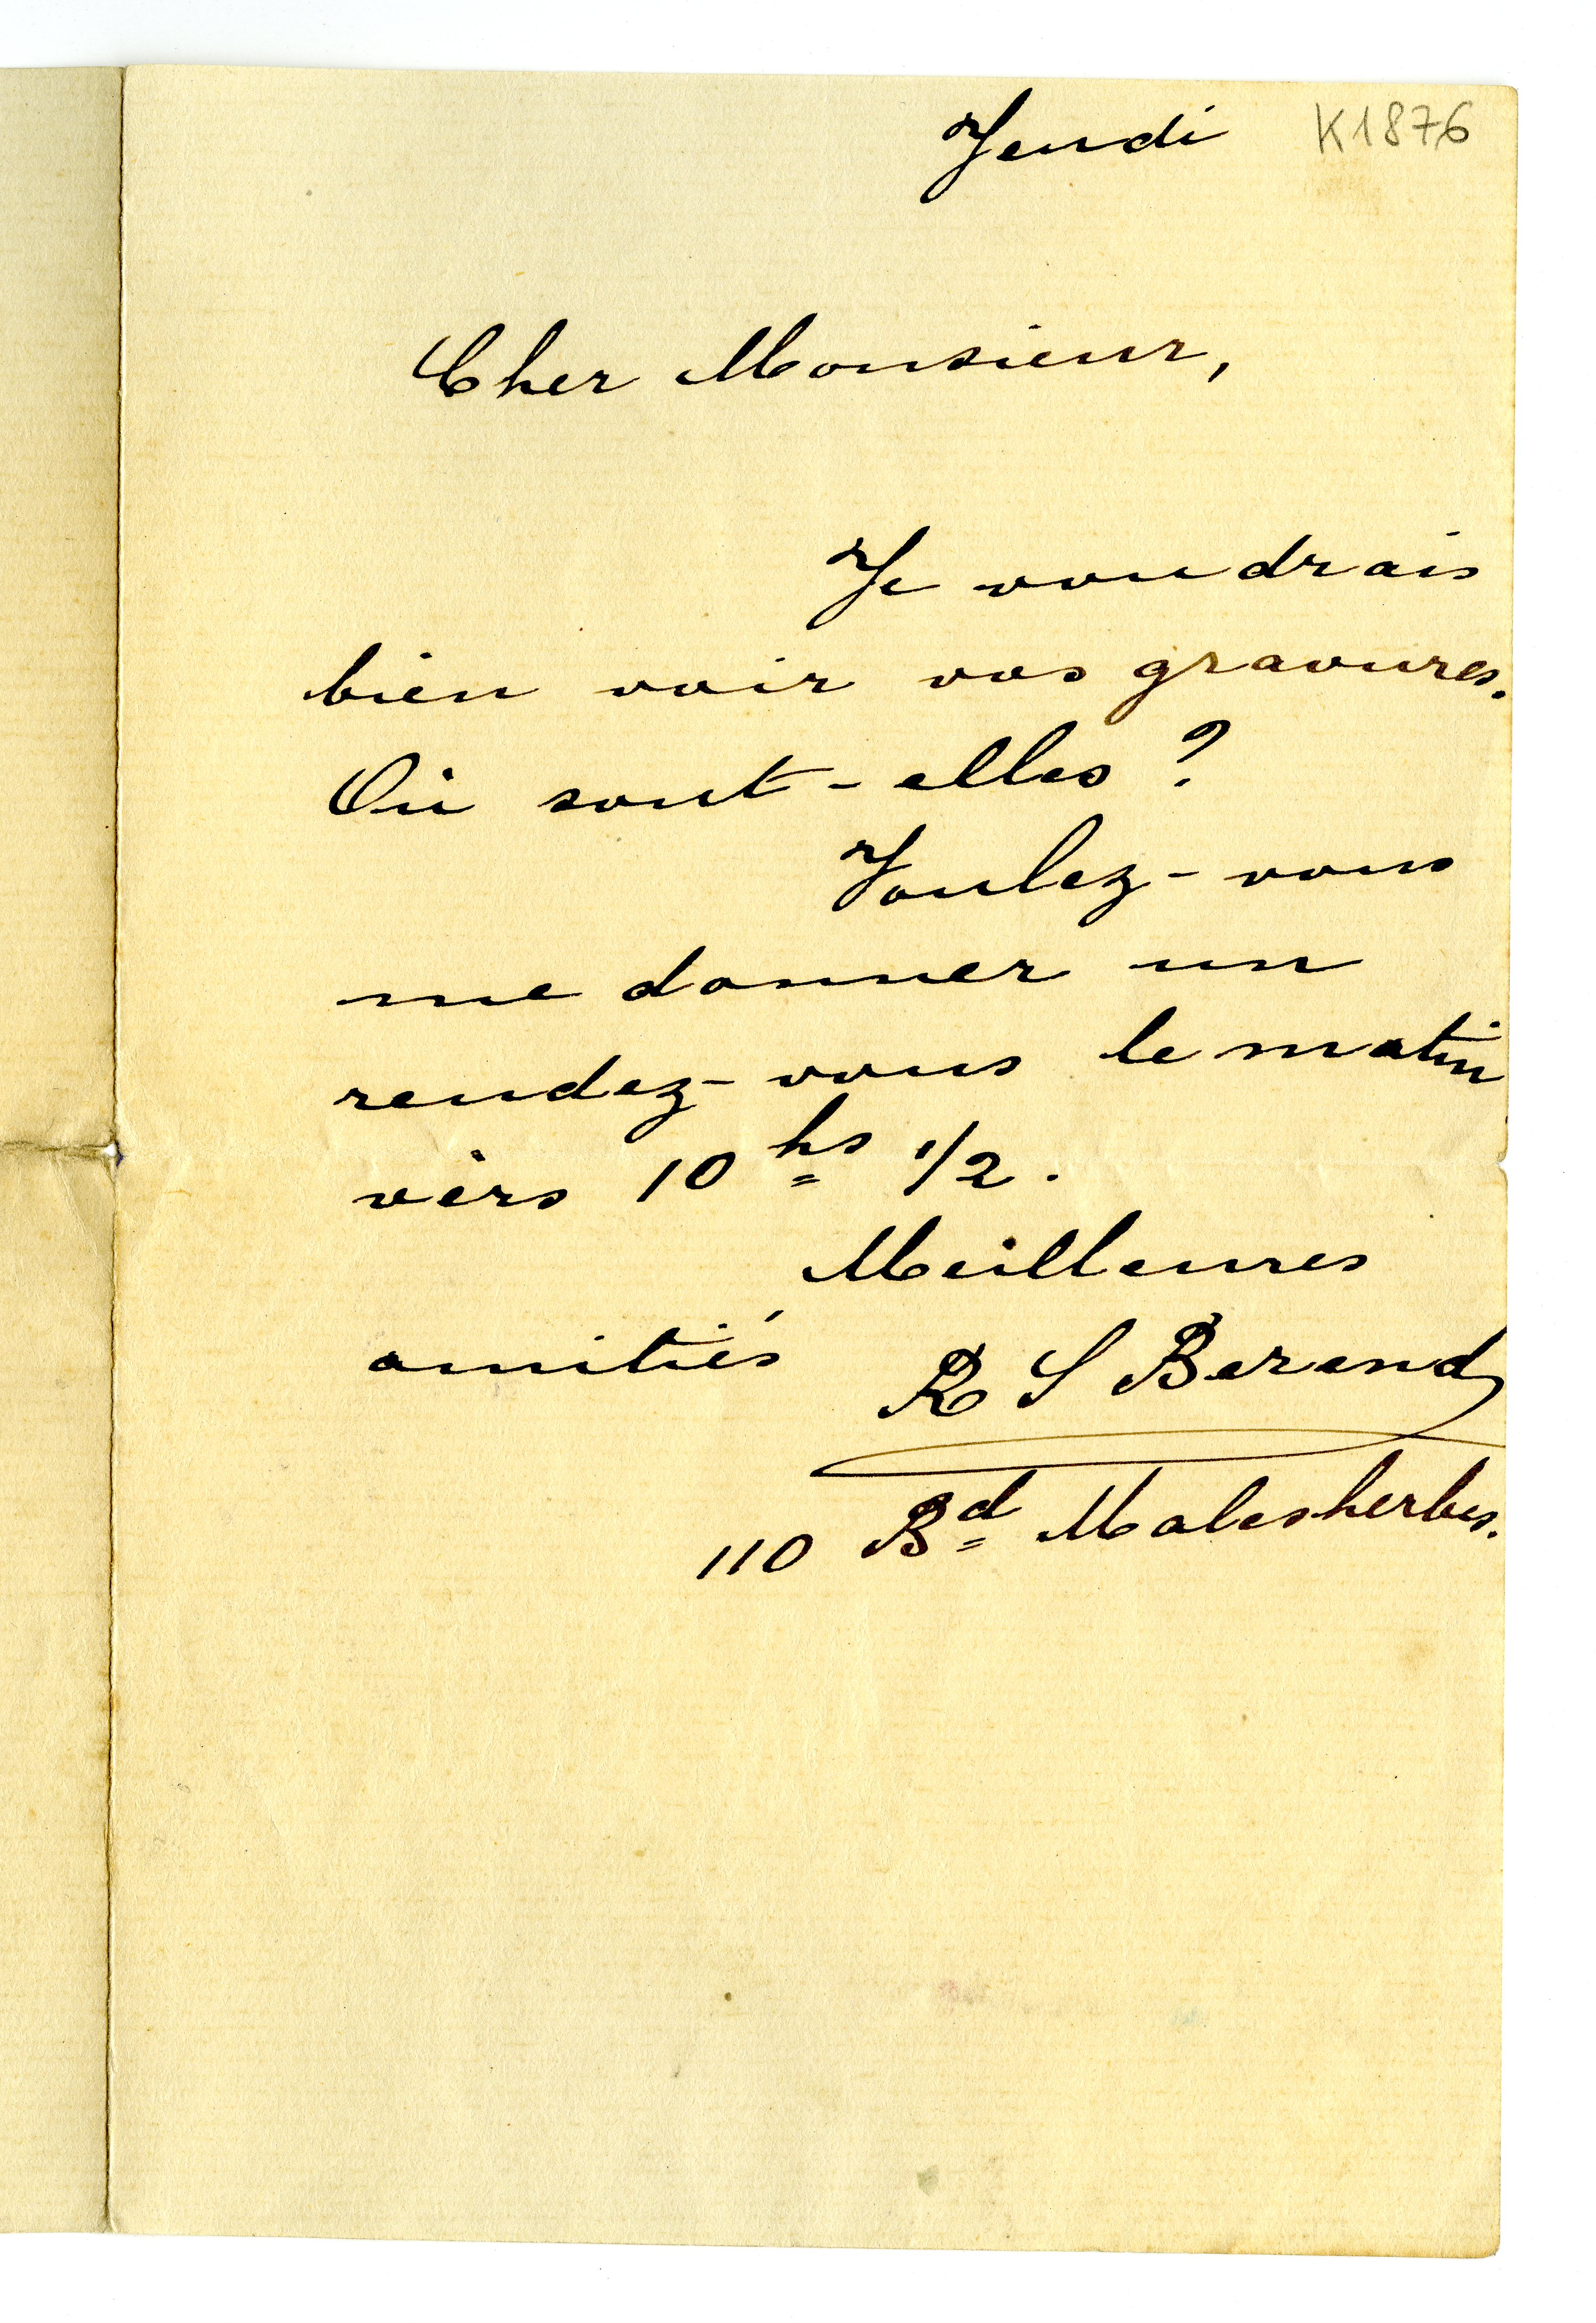 Jeudi K1876
Cher Monsieur,
Je voudrais
bien voir vos gravures.
Où sont-elles ?
Voulez-vous
me donner un
rendez-vous le matin
vers 10 hs 1/2.
Meilleures
amitiés R S Berend
110 Bd Malesherbes.